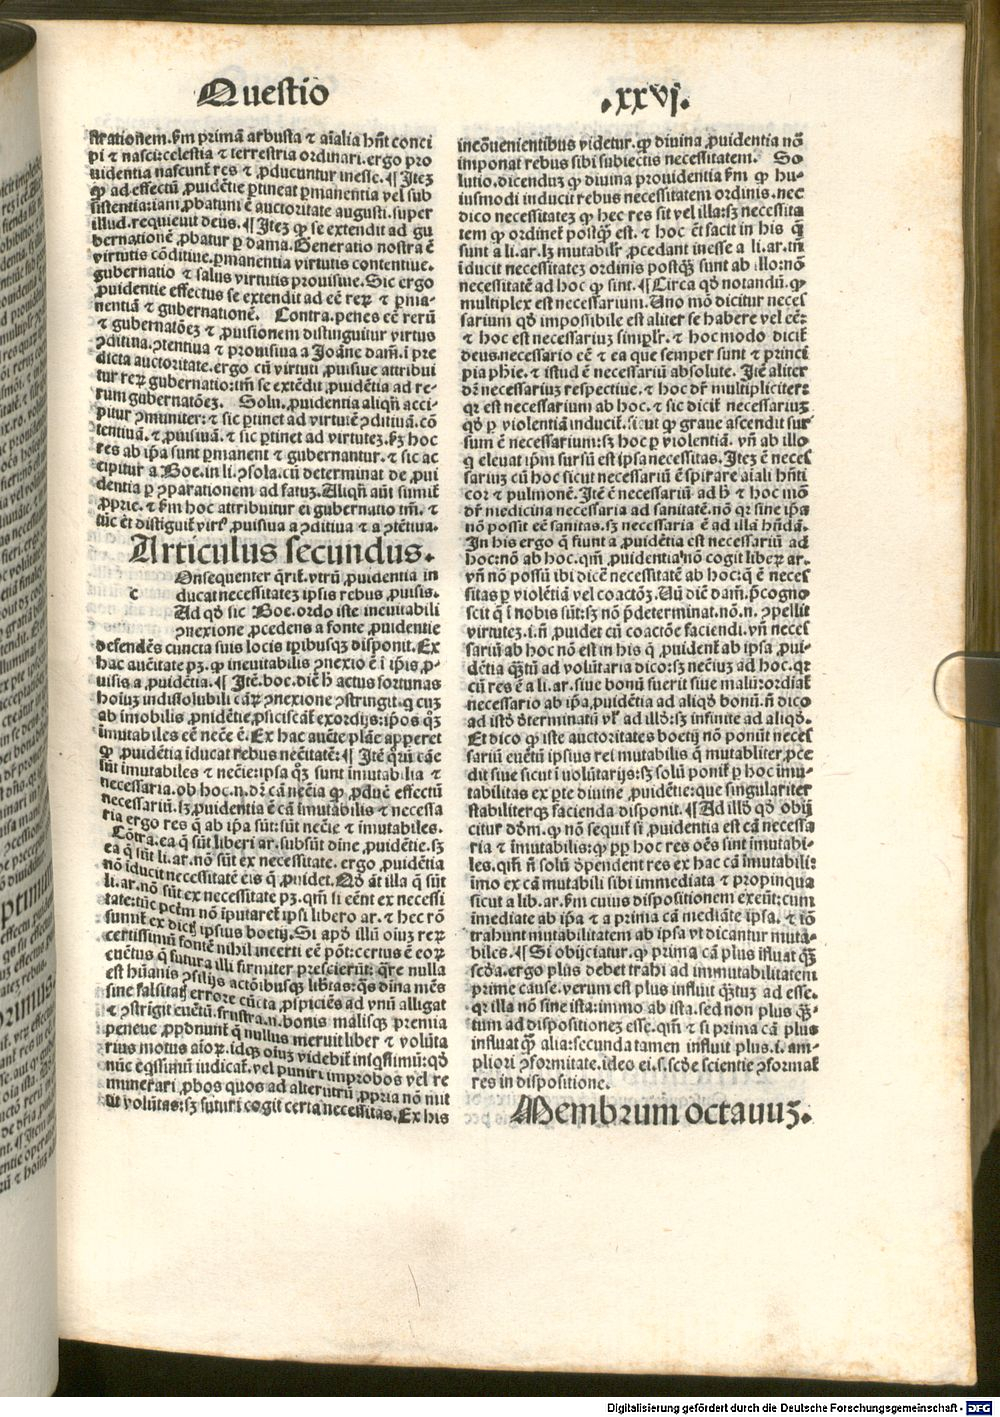 Questio
.xxvj.
strationem. s̃m primã arbusta ⁊ aĩalia hñt conci
pi ⁊ nasci: celestia ⁊ terrestria ordinari. ergo pro
uidentia nascunt̃ res ⁊ ꝓducuntur in esse. ¶ Iteꝫ
ꝙ ad effectũ ꝓuidẽtie ꝑtineat ꝑmanentia vel sub
sistentia: iam ꝓbatum ẽ auctoritate augusti. super
illud. requieuit deus. ¶ Iteꝫ ꝙ se extendit ad gu
bernationẽ ꝓbatur ꝑ dama. Generatio nostra ẽ
virtutis cõditiue. ꝑmanentia virtutis contentiue.
gubernatio ⁊ salus virtutis prouisiue. Sic ergo
ꝓuidentie effectus se extendit ad eẽ reꝝ ⁊ ꝑma-
nentiã ⁊ gubernationẽ. Contra. penes eẽ rerũ
⁊ gubernatõeꝫ ⁊ ꝓuisionem distinguitur virtus
ꝯditiua. ꝯtentiua ⁊ prouisiua a Joãne dam̃. i pre
dicta auctoritate. ergo cũ virtuti ꝓuisiue attribui
tur reꝝ gubernatio: tm̃ se extẽdit ꝓuidẽtia ad re-
rum gubernatõeꝫ. Solu. ꝓuidentia aliqñ acci-
pitur ꝯmuniter: ⁊ sic ꝑtinet ad virtutẽ ꝯditiuã. cõ
tentiuã. ⁊ ꝓuisiuã. ⁊ sic ꝑtinet ad virtuteꝫ. s̃ꝫ hoc
res ab ip̃a sunt ꝑmanent ⁊ gubernantur. ⁊ sic ac
cipitur a Boe. in li. ꝯsola. cũ determinat de ꝓui
dentia ꝑ ꝯparationem ad fatuꝫ. Aliqñ aũt sumit̃
ꝓprie. ⁊ s̃m hoc attribuitur ei gubernatio tm̃. ⁊
tũc ẽt distiguit̃ virtꝰ ꝓuisiua a ꝯditiua ⁊ a ꝯtẽtiua.
Articulus secundus.
Onsequenter q̃rit̃. vtrũ ꝓuidentia in
c ducat necessitateꝫ ipsis rebus ꝓuisis.
Ad qď sic Boe. ordo iste ineuitabili
ꝯnexione ꝓcedens a fonte ꝓuidentie
defendẽs cuncta suis locis tp̃ibusqꝫ disponit. Ex
hac auc̃titate pꝫ. ꝙ ineuitabilis ꝯnexio ẽ i ip̃is ꝓ-
uisis a ꝓuidẽtia. ¶ Itẽ. boc. diẽ h̃ actus fortunas
hoĩuꝫ indissolubili cãꝝ ꝯnexione ꝯstringit. q̃ cuꝫ
ab imobilis ꝓuidẽtie ꝓficiscãt̃ exordijs: ip̃os qꝫ
imutabiles eẽ necẽ ẽ. Ex hac auc̃te plãe apperet
ꝙ ꝓuidẽtia iducat rebus nec̃itatẽ: ¶ Itẽ q̃rũ cãe
sũt imutabiles ⁊ nec̃ie: ipsa qꝫ sunt imutabilia ⁊
necessaria. ob hoc. n. dr̃ cã nec̃ia ꝙ ꝓduc̃ effectũ
necessariũ. sꝫ ꝓuidentia ẽ cã imutabilis ⁊ necessa
ria ergo res q̃ ab ip̃a sũt: sũt nec̃ie ⁊ imutabiles.
Cõtra. ea q̃ sũt liberi ar. subsũt dine ꝓuidẽtie. sꝫ
ea q̃ sũt li. ar. nõ sũt ex necessitate. ergo ꝓuidẽtia
nõ iducit necessitatẽ eis q̃ ꝓuidet. Qď aũt illa q̃ sũt
li. ar. nõ sũt ex necessitate pꝫ. qm̃ si eẽnt ex necessi
tate: tũc pctm̃ nõ iputaret̃ ipsi libero ar. ⁊ hec rõ
sumit̃ ex dict̃ ipsius boetij. Si apď illũ oĩuꝫ reꝝ
certissimũ fontẽ nihil incerti eẽ põt: certus ẽ eoꝝ
euẽtus q̃ futura illi firmiter prescierũt: q̃re nulla
est hũanis ꝯsilijs actõibusqꝫ libtas: q̃s dina mẽs
sine falsitat̃ errore cũcta ꝓspiciẽs ad vnũ alligat
⁊ ꝯstrigit euẽtũ. frustra. n. bonis malisqꝫ premia
peneue ꝓponunt̃ q̃ nullus meruit liber ⁊ volũta
rius motus aĩoꝝ. idqꝫ oĩuꝫ videbit̃ iniq̃ssimũ: qď
nũc eq̃ssimũ iudicat̃. vel puniri improbos vel re
munerari ꝓbos quos ad alterutrũ ꝓpria nõ mit
tit volũtas: sꝫ futuri cogit certa necessitas. Ex his
incõuenientibus videtur. ꝙ diuina ꝓuidentia nõ
imponat rebus sibi subiectis necessitatem. So
lutio. dicenduꝫ ꝙ diuina prouidentia s̃m ꝙ hu-
iusmodi inducit rebus necessitatem ordinis. nec
dico necessitateꝫ ꝙ hec res sit vel illa: sꝫ necessita
tem ꝙ ordinet̃ postꝗ̃ est. ⁊ hoc ẽt facit in his q̃
sunt a li. ar. lꝫ mutabilr̃ ꝓcedant in esse a li. ar. tñ
iducit necessitateꝫ ordinis postꝗ̃ sunt ab illo: nõ
necessitatẽ ad hoc ꝙ sint. ¶ Circa qď notandũ. ꝙ
multiplex est necessarium. Uno mõ dicitur neces
sarium qď impossibile est aliter se habere vel eẽ:
⁊ hoc est necessariuꝫ simpl̃r. ⁊ hoc modo dicit̃
deus. necessario eẽ ⁊ ea que semper sunt ⁊ princi
pia phie. ⁊ istud ẽ necessariũ absolute. Itẽ aliter
dr̃ necessariuꝫ respectiue. ⁊ hoc dr̃ multipliciter:
qꝛ est necessarium ab hoc. ⁊ sic dicit̃ necessariuꝫ
qď ꝑ violentiã inducit̃. sicut ꝙ graue ascendit sur
sum ẽ necessarium: sꝫ hoc ꝑ violentiã. vñ ab illo
q̃ eleuat ip̃m sursũ est ipsa necessitas. Iteꝫ ẽ neces
sariuꝫ cũ hoc sicut necessariũ ẽ spirare aĩali hñti
cor ⁊ pulmonẽ. Itẽ ẽ necessariũ ad h̃ ⁊ hoc mõ
dr̃ medicina necessaria ad sanitatẽ. nõ qꝛ sine ip̃a
nõ possit eẽ sanitas. sꝫ necessaria ẽ ad illã hñdã.
In his ergo q̃ fiunt a ꝓuidẽtia est necessariũ ad
hoc: nõ ab hoc. qm̃ ꝓuidentia nõ cogit liberꝝ ar.
vñ nõ possũ ibi dicẽ necessitatẽ ab hoc: q̃ ẽ neces
sitas ꝑ violẽtiã vel coactõꝫ. Uñ diẽ dam̃. p̃cogno
scit q̃ i nobis sũt: sꝫ nõ p̃determinat. nõ. n. ꝯpellit
virtuteꝫ. i. ñ ꝓuidet cũ coactõe faciendi. vñ neces
sariũ ab hoc nõ est in his q̃ ꝓuident̃ ab ipsa ꝓui-
dẽtia ꝗ̃tũ ad volũtaria dico: sꝫ nec̃iuꝫ ad hoc. qꝛ
cũ res ẽ a li. ar. siue bonũ fuerit siue malũ: ordiat̃
necessario ab ip̃a ꝓuidẽtia ad aliqď bonũ. ñ dico
ad istď determinatũ vꝉ ad illď: sꝫ infinite ad aliqď.
Et dico ꝙ iste auctoritates boetij nõ ponũt neces
sariũ euẽtũ ipsius rei mutabilis q̃ mutabliter ꝓce
dit siue sicut i volũtarijs: sꝫ solũ ponit̃ ꝑ hoc imu-
tabilitas ex ꝑte diuine ꝓuidẽtie: que singulariter
stabiliterqꝫ facienda disponit. ¶ Ad illď qď obij
citur dďm. ꝙ nõ sequit̃ si ꝓuidentia est cã necessa
ria ⁊ imutabilis: ꝙ ꝓp̃ hoc res oẽs sint imutabi-
les. qm̃ ñ solũ depẽndent res ex hac cã imutabili:
imo ex cã mutabili sibi immediata ⁊ propinqua
sicut a lib. ar. s̃m cuius dispositionem exeũt: cum
imediate ab ip̃a ⁊ a prima cã mediãte ipsa. ⁊ iõ
trahunt mutabilitatem ab ipsa vt dicantur muta-
biles. ¶ Si obijciatur. ꝙ prima cã plus ifluat ꝗ̃
sec̃da. ergo plus debet trahi ad immutabilitatem
prime cause. verum est plus influit ꝗ̃tuꝫ ad esse.
qꝛ illa nõ sine ista: immo ab ista. sed non plus ꝗ̃-
tum ad dispositioneꝫ esse. qm̃ ⁊ si prima cã plus
influat ꝗ̃ alia: secunda tamen influit plus. i. am-
pliori ꝯformitate. ideo ei. s. sc̃de scientie ꝯformat̃
res in dispositione.
Membrum octauuꝫ.
Digitalisierung gefördert durch die Deutsche Forschungsgemeinschaft - DFG